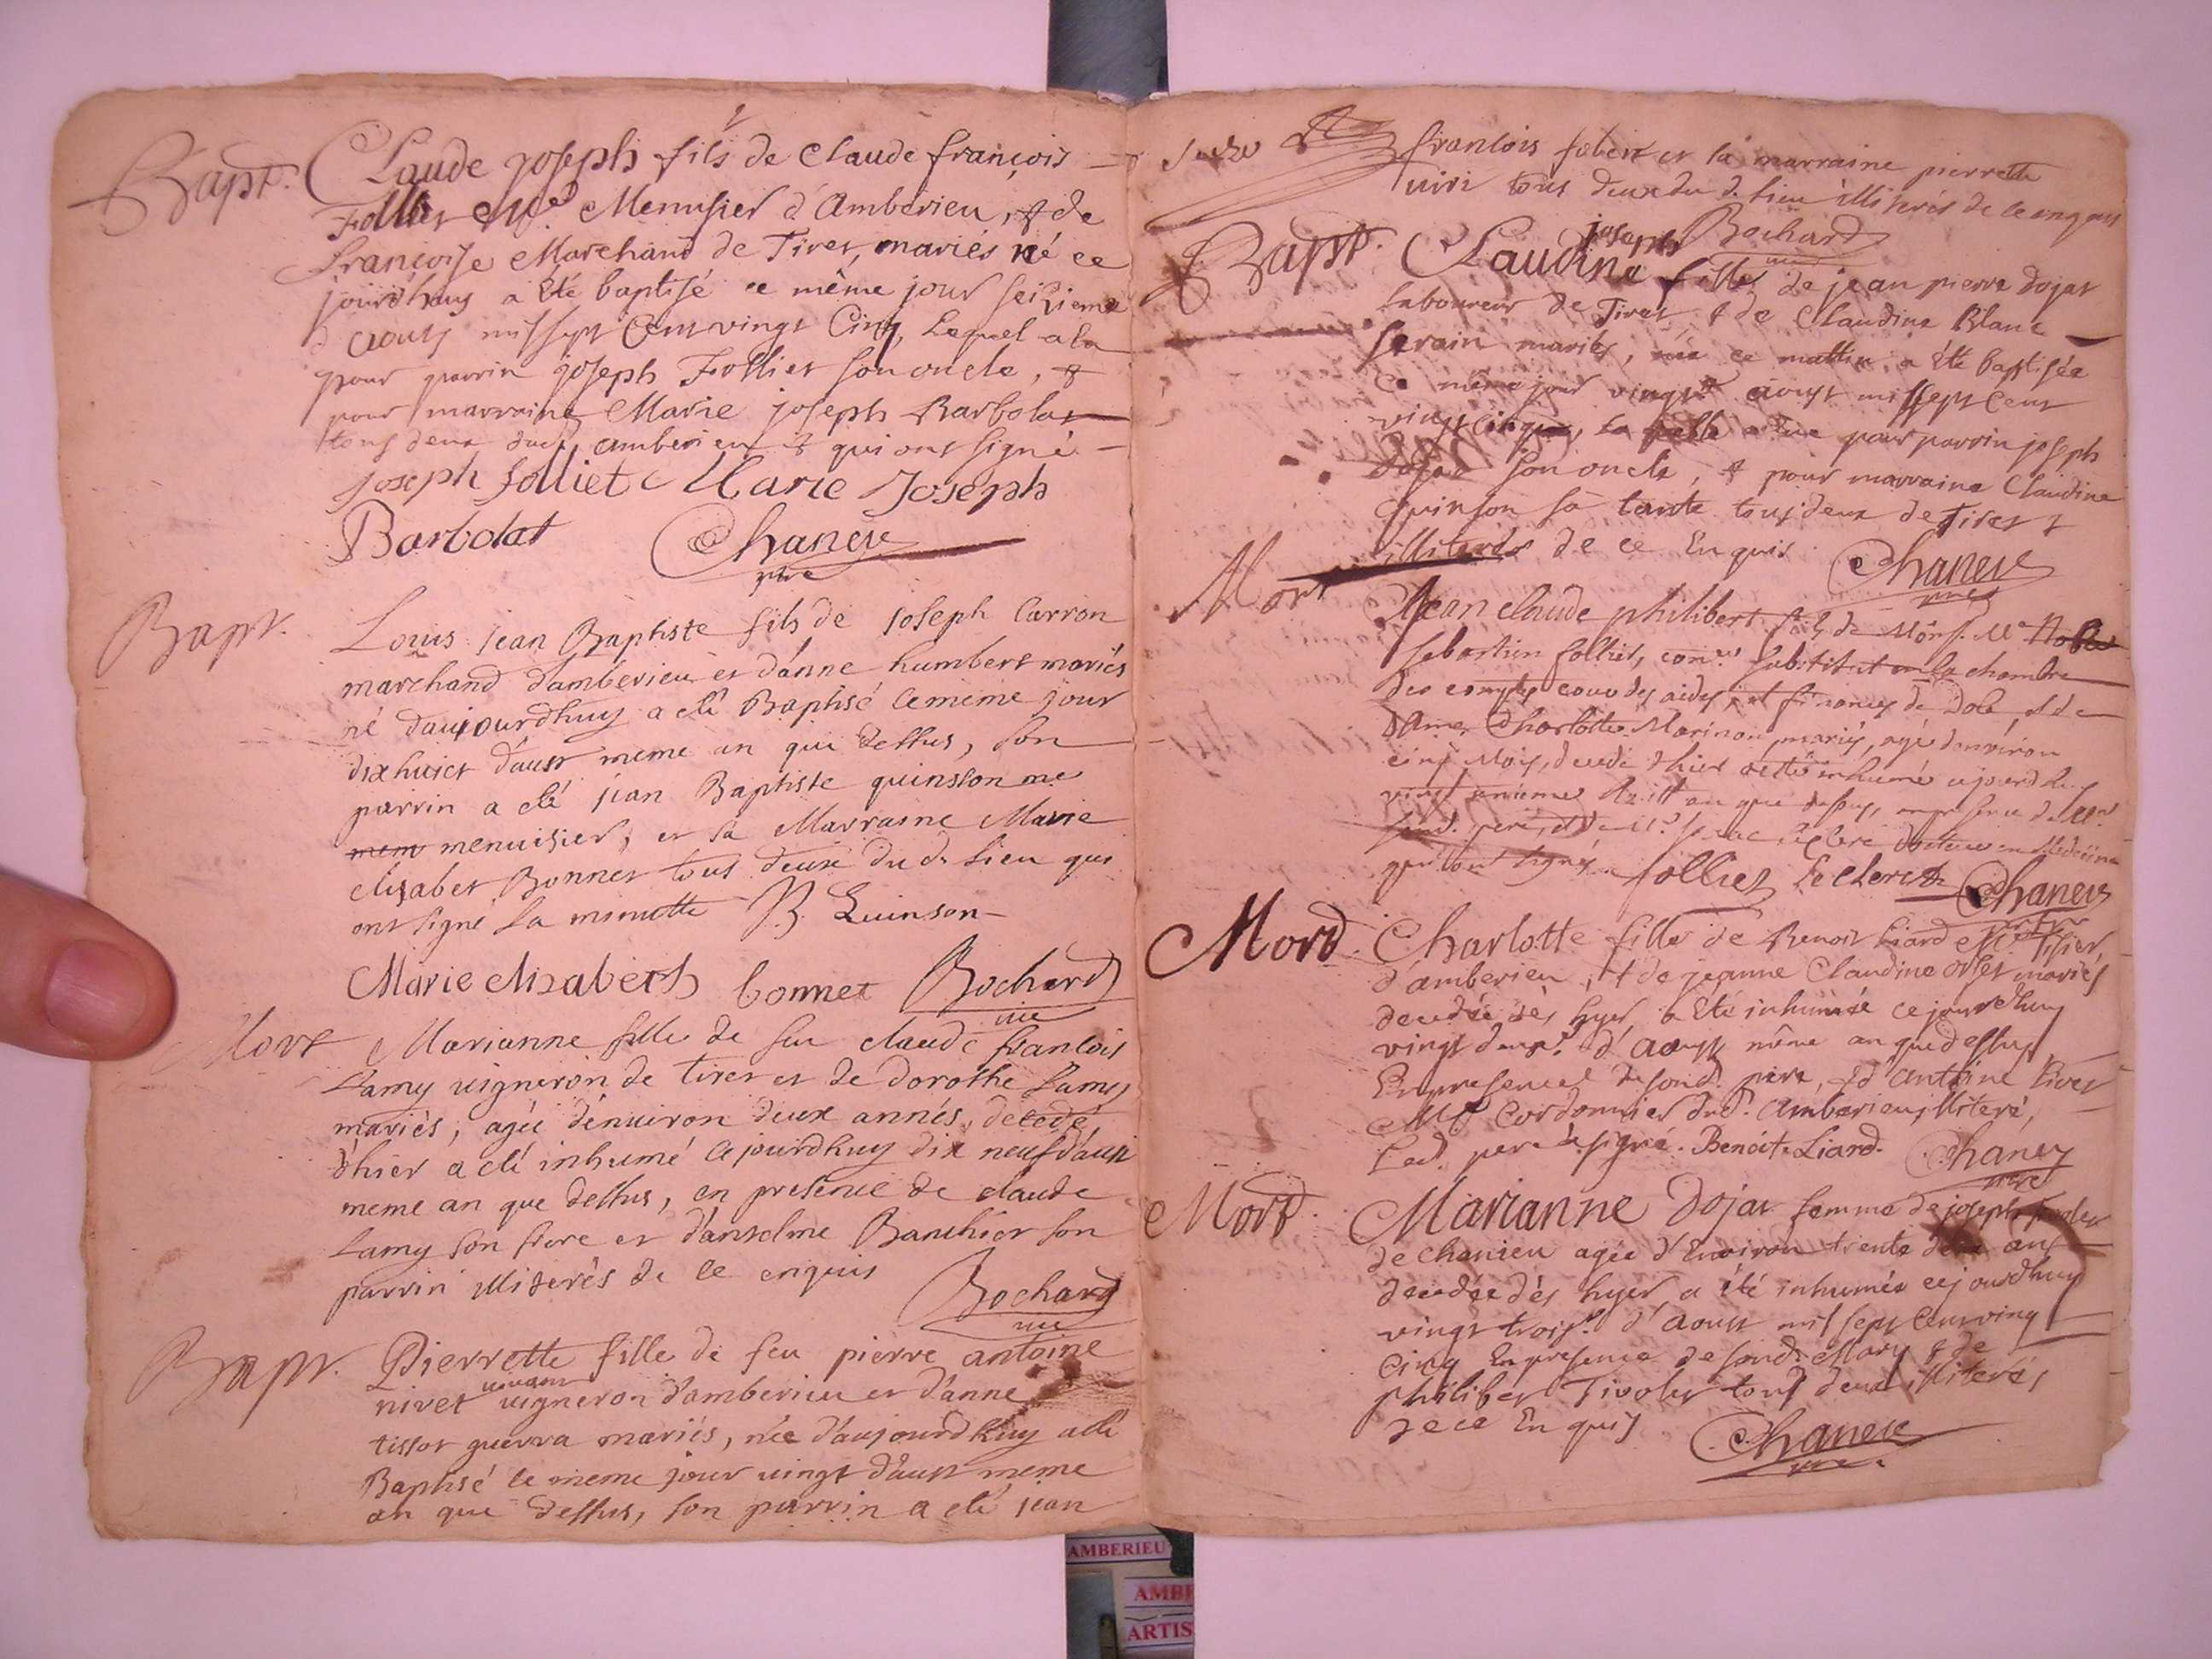 Bapt. Claude joseph fils de Claude françois
Follliet Me Menusier d'Amberieu, & de
françoise Marchand de Tiret, mariés né ce
jourdhuy a été baptisé ce même jour seizieme
d'Aoust mil sept Cent vingt Cinq, Lequel a eu
pour parrin joseph Folliet son oncle, &
pour marraine Marie joseph Barbolat
tous deux dud. amberieu & qui ont signé
joseph folliet Marie Joseph
Barbolat Chanere
ptre
Bapt. Louis jean Baptiste fils de Joseph Carron
marchand d'amberieu et d'anne humbert mariés
né d'aujourdhuy a eté Baptisé le meme jour
dix huict d'aust meme an que dessus, son
parrin a eté jean Baptiste quinson me
mem menuisier, et sa Marraine Marie
elizabet Bonnet tous deux du d. lieu qui
ont signé la minutte B. Quinson
Marie elizabeth bonnet Bochard
vic
Mort Marianne fille de feu claude francois
Lamy vigneron de tiret et de dorothe Lamy
mariés, agée d'enuiron deux annés, decedé
d'hier a eté inhumé ce jourdhuy dix neuf d'aust
meme an que dessus, en presence de claude
Lamy son frere et d'anselme Bauthier son
parrin illiterés de ce enquis
Bochard
vic
Bapt. Pierrette fille de feu pierre antoine
vivant
nivet vigneron d'amberieu et d'anne
tissot guerra mariés, née d'aujourdhuy a eté
Baptisé le meme jour vingt d'aust meme
an que dessus, son parrin a eté jean
francois et la marraine pierrette
tous deux du d. lieu illiterés de ce enquis
Bochard
vic
joseph
Bapt. Claudine fille de jean pierre dojat
Laboureur de Tiret & de Claudine Blanc
Serain mariés, née ce mattin a été baptisée
ce même jour vingte aoust mil sept Cent
vingt cinq, Laquelle a eue pour parrin joseph
dojat son oncle, & pour marraine Claudine
quinson sa tante tous deux de Tiret &
illiterés de ce Enquis Chanere
ptre
Mort Jean claude philibert fils de Monsr. Me
Sebastien folliet, coner. substitut en la chambre
des comptes cour des aides, et finances de Dole, et de
Dame Charlotte Marinon mariés, agé d'enviror
cinq Mois, decedé d'hier
an que dessus, en presence de
pere, et de docteur en Medecine
qui ont signés. folliet Leclerc Chanere
ptre
Mord Charlotte fille de Benoit Liard Me
d'amberieu, & de jeanne Claudine orset mariés
decedée dès hyer a été inhumée ce jourdhuy
vingt deuxe. d'Aoust même an que dessus
En presence de sond. pere, & d'antoine
Me Cordonnier dud. Amberieu, illiteré,
Led. pere a signé. Benoit Liard. Chanere
ptre
Mord Marianne Dojat femme de joseph
de chanieu agée d'Environ trente an
decedée dès hyer a été inhumée cejourdhuy
vingt troise. d'Aoust mil sept Cent vingt
Cinq En presence de sond. Mary & de
philibert Tivolet tous deux illiterés
de ce Enquis Chanere
ptre
AMBERIEU
AMBE
ARTIS